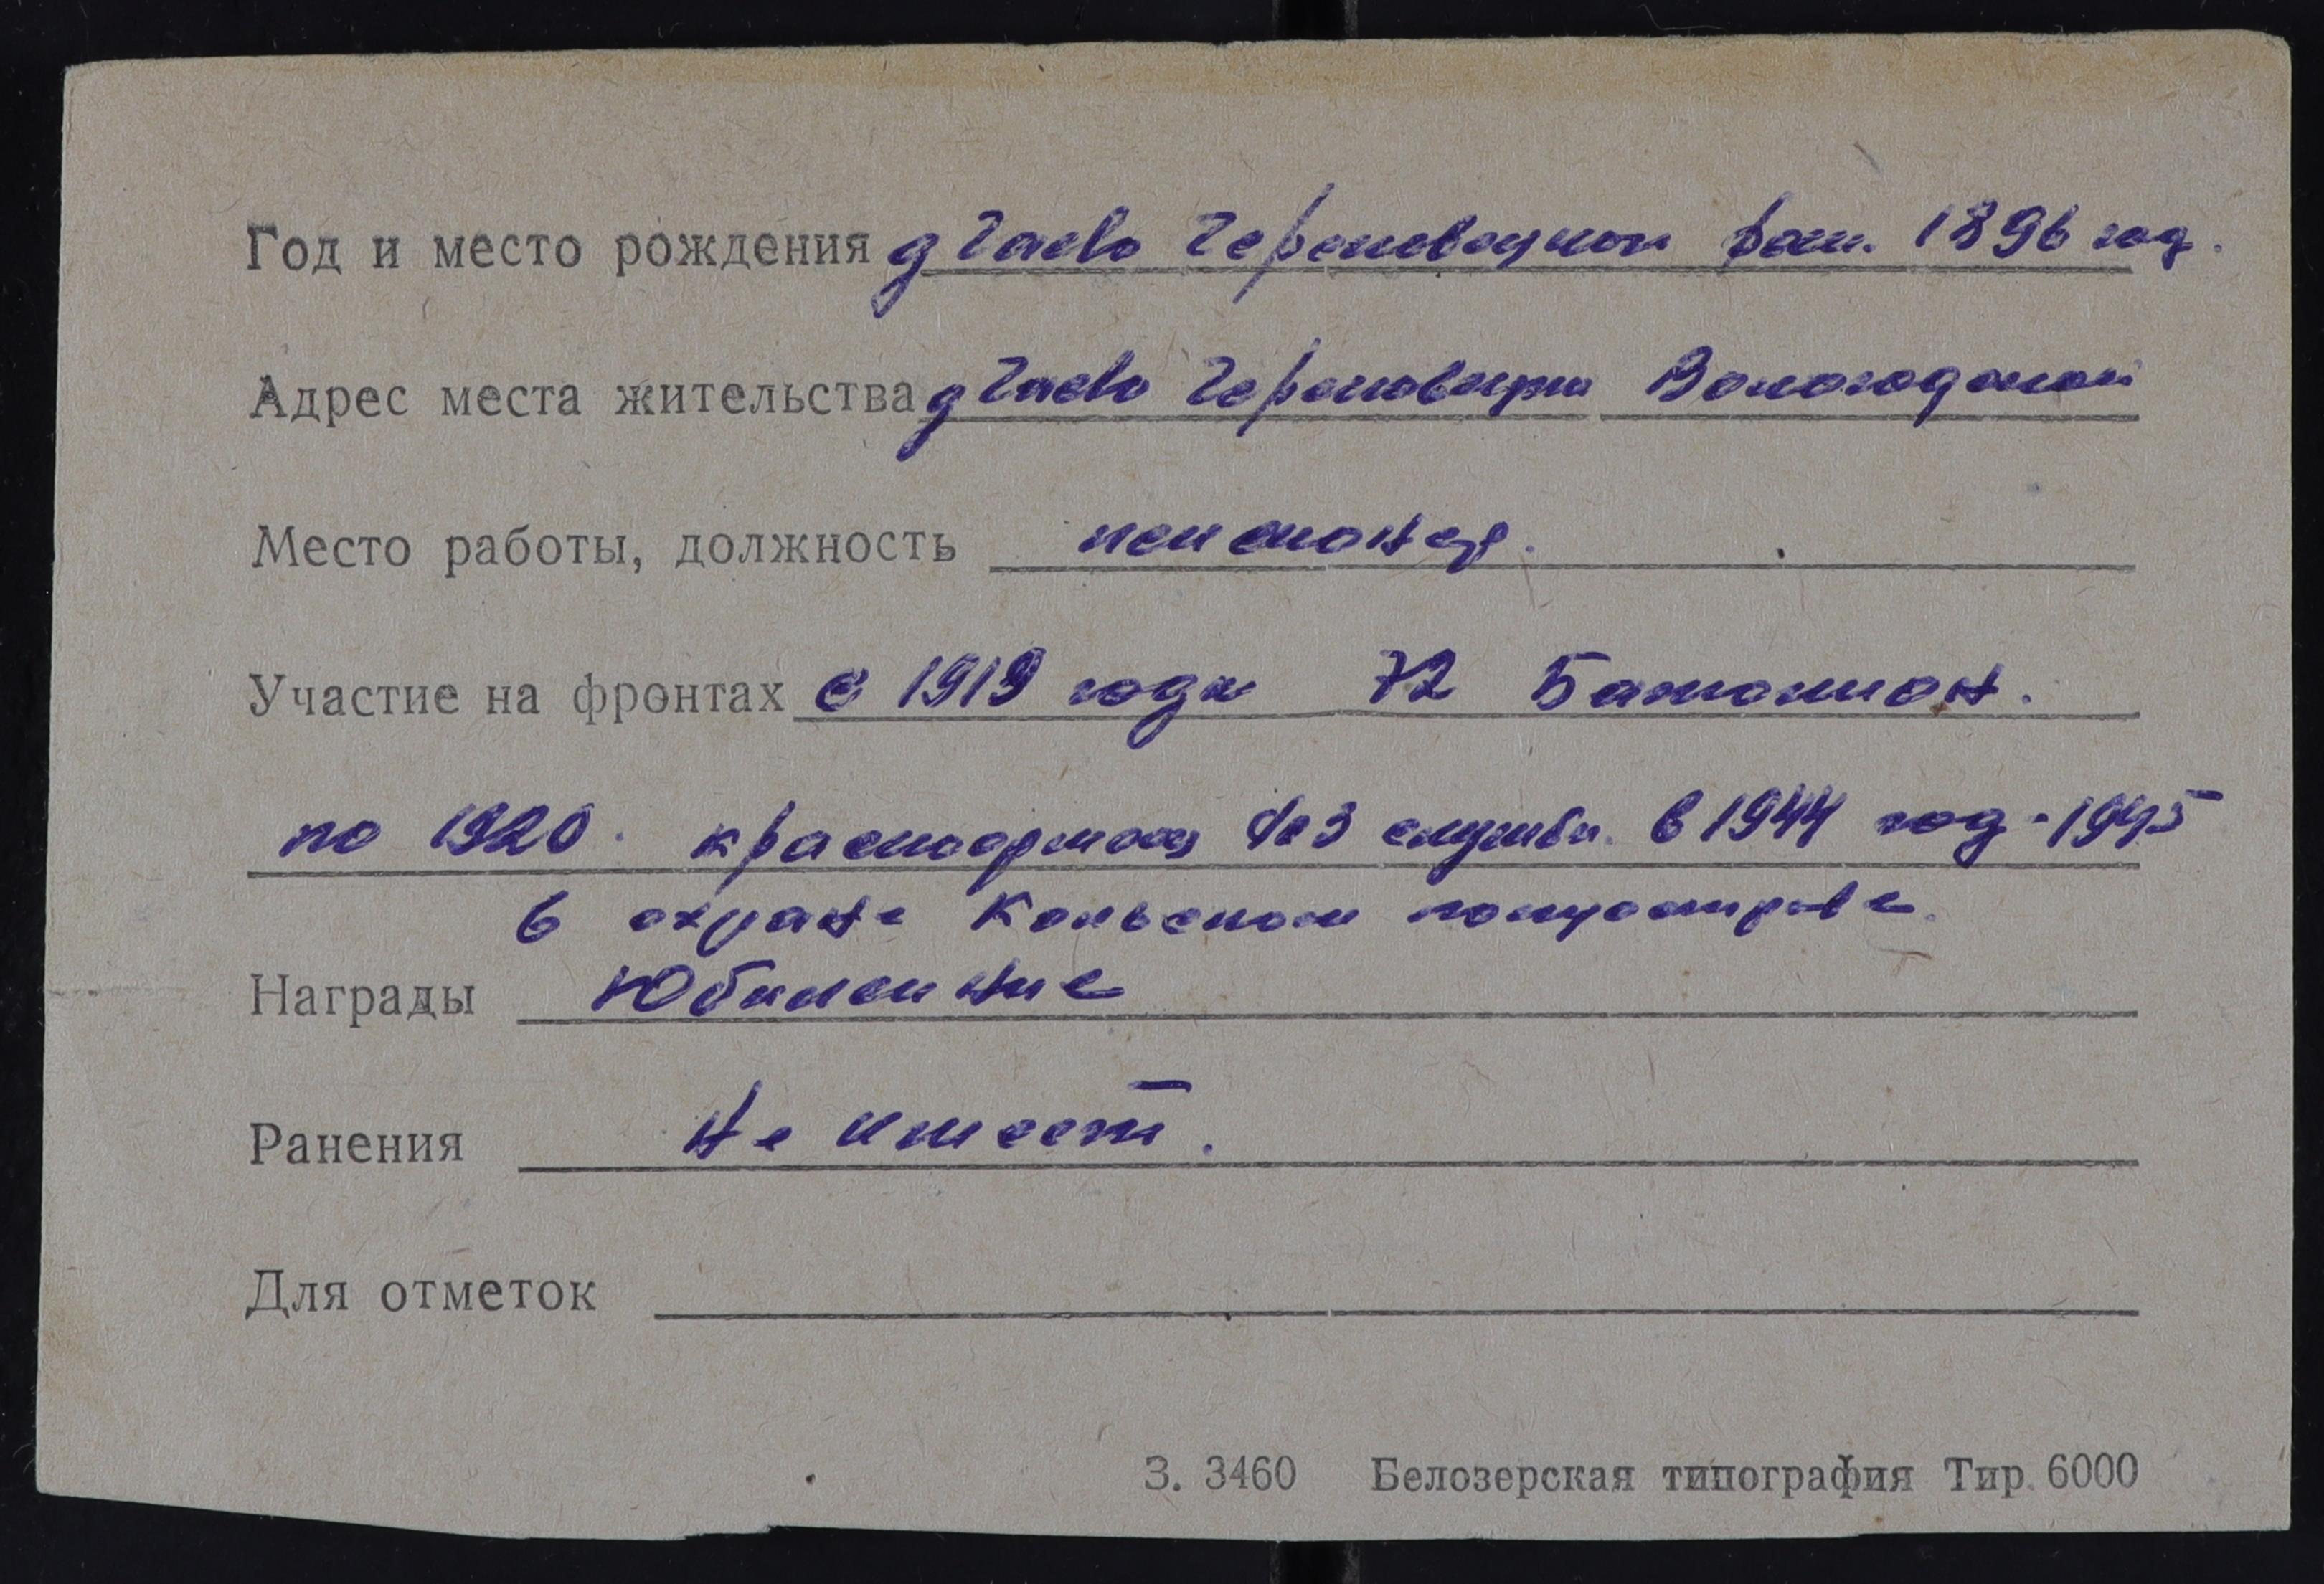 Год и место рождения д Чаево Череповецкий рай. 1896 год.
Адрес места жительства д Чаево Череповецкий Вологодской
Место работы, должность пенсионер.
Участие на фронтах с 1919 года 72 Батальион.
по 1920. красноармеец службы. в 1944 год - 1945
в охране Кольском полуострове.
Награды Юбилейные
Ранения Не имеет.
Для отметок
З. 3460 Белозерская типография Тир. 6000